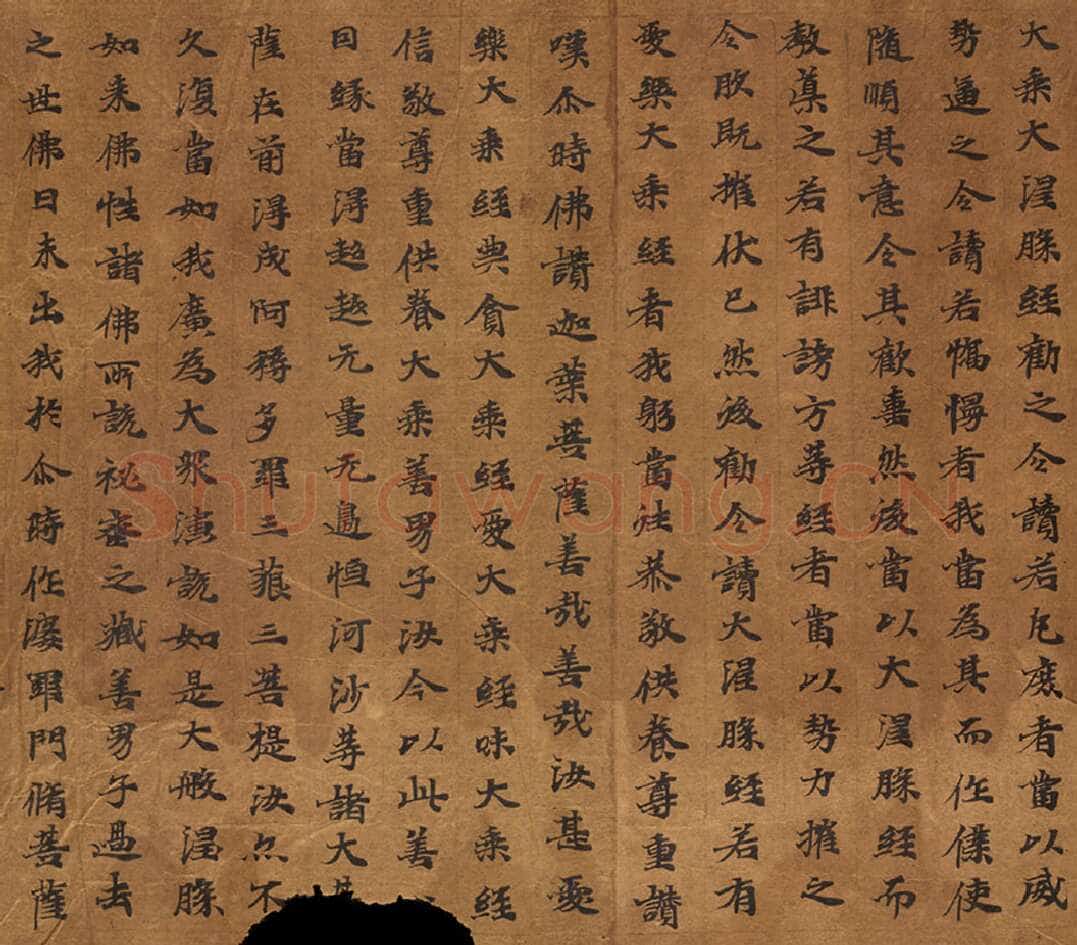 大乘大涅槃經勸之令讀若凡庶者當以威
勢逼之令讀若憍慢者我當為其而作僕使
隨順其意令其歡喜然後當以大涅槃經而
教導之若有誹謗方等經者當以勢力摧之
令伏既摧伏已然後勸令讀大涅槃經若有
愛樂大乘經者我躬當往恭敬供養尊重讚
嘆尒時佛讚迦葉菩薩善哉善哉汝甚愛
樂大乘經典貪大乘經愛大乘經味大乘經
信敬尊重供養大乘善男子汝今以此善
因緣當得超越无量无邊恒河沙等諸大
薩在前得成阿耨多羅三藐三菩提汝亦不
久復當如我廣為大眾演說如是大般涅槃
如來佛性諸佛所說祕密之藏善男子過去
之世佛日未出我於尒時作婆羅門脩菩薩
Shufawang.CN